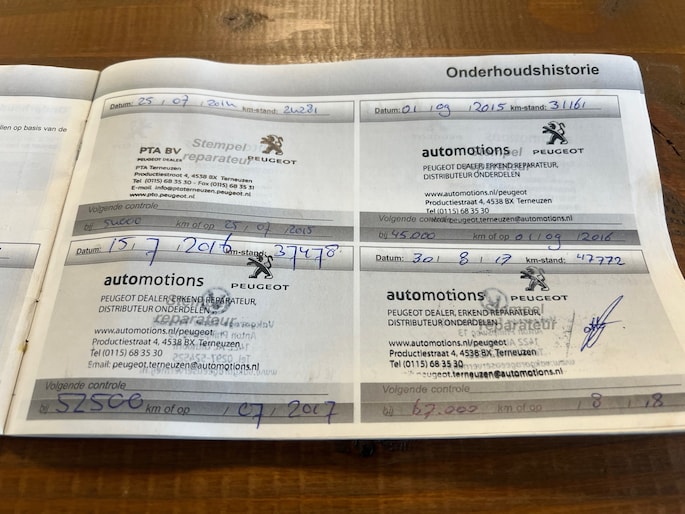 Onderhoudshistorie
llen op basis van de
Datum: 25 , 07 , 2014 km-stand:
Stempel
reparateur
PEUGEOT
PTA BV
PEUGEOT DEALER
PTA Terneuzen
Productiestraat 4, 4538 BX Terneuzen
Tel (0115) 68 35 30 - Fax (0115) 68 35 31
E-mail: info@ptaterneuzen.peugeot.nl
www.pta.peugeot.nl
Volgende controle
bij km of op 25 , 07 , 2015
Datum: 01 , 09 , 2015 km-stand: 31161
automotions
PEUGEOT
PEUGEOT DEALER, ERKEND REPARATEUR,
DISTRIBUTEUR ONDERDELEN
www.automotions.nl/peugeot
Productiestraat 4, 4538 BX Terneuzen
Tel (0115) 68 35 30
Email: peugeot.terneuzen@automotions.nl
Volgende controle
bij 45.000 km of op 01 , 09 , 2016
Datum: 15 , 7 , 2016 km-stand: 37478
automotions
PEUGEOT
PEUGEOT DEALER, ERKEND REPARATEUR,
DISTRIBUTEUR ONDERDELEN
reparateur
www.automotions.nl/peugeot
Productiestraat 4, 4538 BX Terneuzen
Tel (0115) 68 35 30
Email: peugeot.terneuzen@automotions.nl
Volgende controle
bij 52500 km of op , 07 , 2017
Datum: 30 , 8 , 17 km-stand: 47772
automotions
PEUGEOT
PEUGEOT DEALER, ERKEND REPARATEUR,
DISTRIBUTEUR ONDERDELEN
reparateur
www.automotions.nl/peugeot
Productiestraat 4, 4538 BX Terneuzen
Tel (0115) 68 35 30
Email: peugeot.terneuzen@automotions.nl
Volgende controle
bij 67.000 km of op , 8 , 18